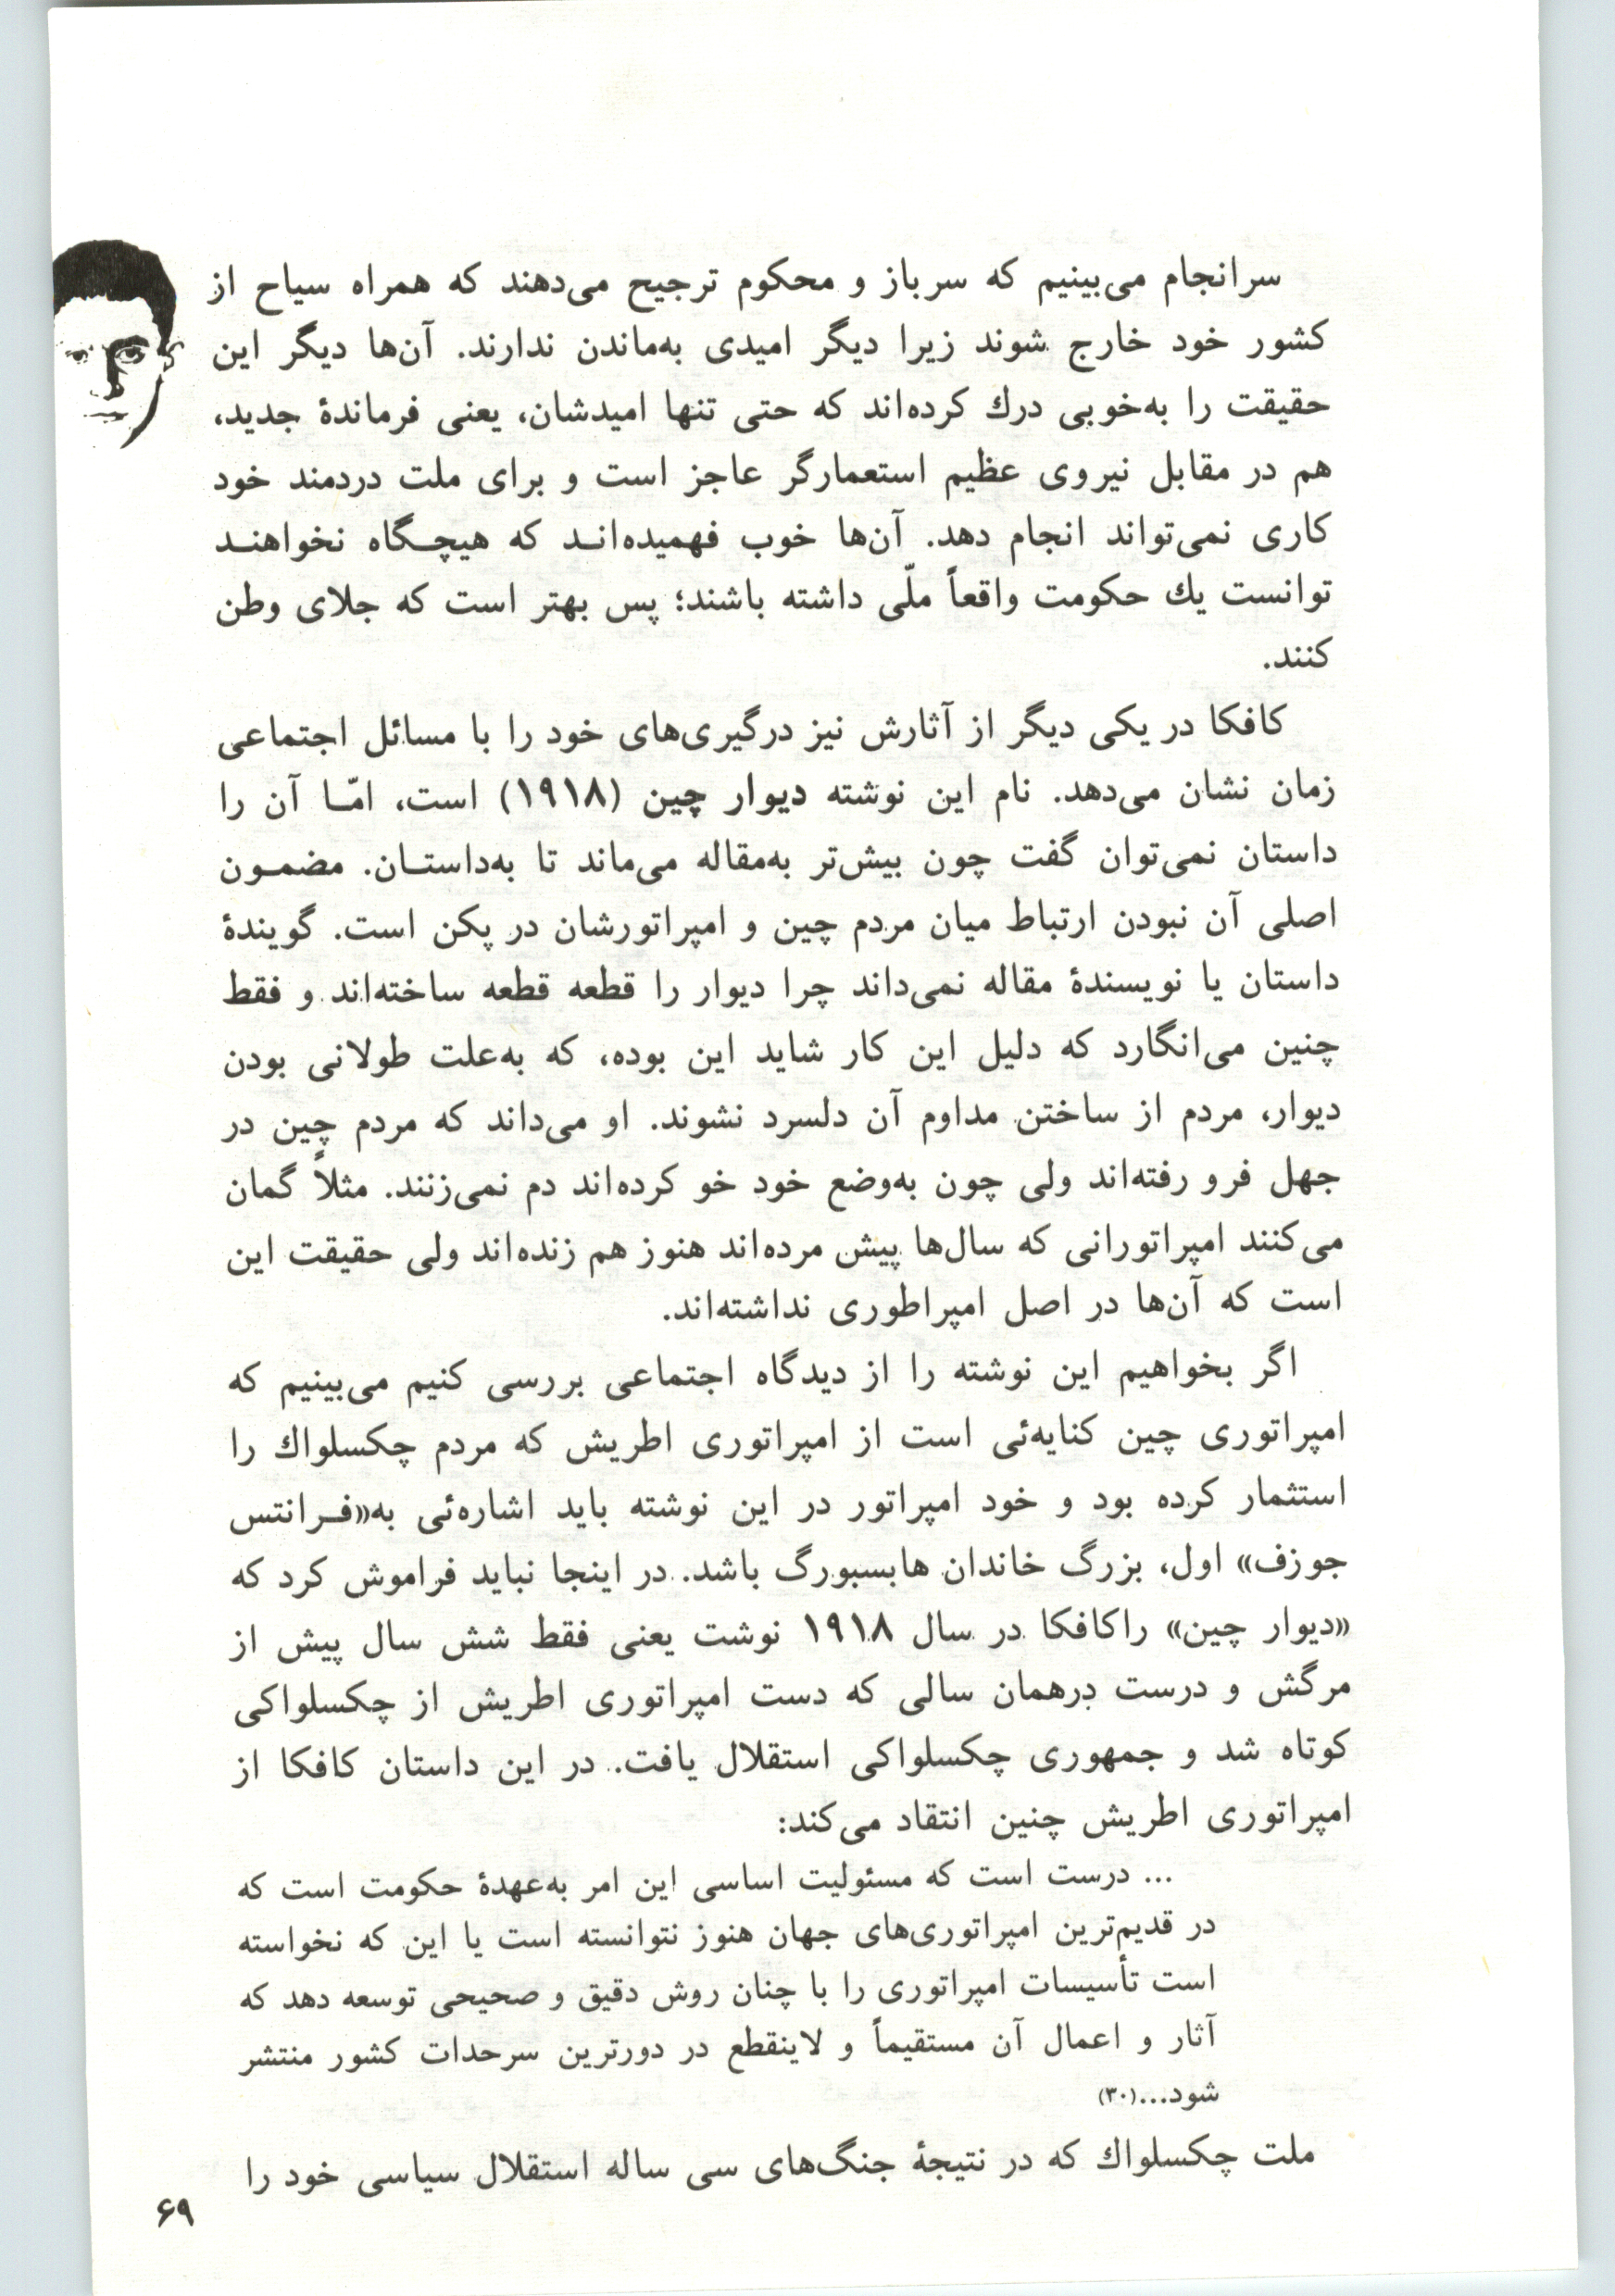 سرانجام می‌بینیم که سرباز و محکوم ترجیح می‌دهند که همراه سیاح از
کشور خود خارج شوند زیرا دیگر امیدی به‌ماندن ندارند. آن‌ها دیگر این
حقیقت را به‌خوبی درك کرده‌اند که حتی تنها امیدشان، یعنی فرماندۀ جدید،
هم در مقابل نیروی عظیم استعمارگر عاجز است و برای ملت دردمند خود
کاری نمی‌تواند انجام دهد. آن‌ها خوب فهمیده‌انـد که هیچـگاه نخواهنـد
توانست یك حکومت واقعاً ملّی داشته باشند؛ پس بهتر است که جلای وطن
کنند.
کافکا در یکی دیگر از آثارش نیز درگیری‌های خود را با مسائل اجتماعی
زمان نشان می‌دهد. نام این نوشته دیوار چین (۱۹۱۸) است، امّـا آن را
داستان نمی‌توان گفت چون بیش‌تر به‌مقاله می‌ماند تا به‌داستـان. مضمـون
اصلی آن نبودن ارتباط میان مردم چین و امپراتورشان در پکن است. گویندۀ
داستان یا نویسندۀ مقاله نمی‌داند چرا دیوار را قطعه قطعه ساخته‌اند و فقط
چنین می‌انگارد که دلیل این کار شاید این بوده، که به‌علت طولانی بودن
دیوار، مردم از ساختن مداوم آن دلسرد نشوند. او می‌داند که مردم چین در
جهل فرو رفته‌اند ولی چون به‌وضع خود خو کرده‌اند دم نمی‌زنند. مثلاً گمان
می‌کنند امپراتورانی که سال‌ها پیش مرده‌اند هنوز هم زنده‌اند ولی حقیقت این
است که آن‌ها در اصل امپراطوری نداشته‌اند.
اگر بخواهیم این نوشته را از دیدگاه اجتماعی بررسی کنیم می‌بینیم که
امپراتوری چین کنایه‌ئی است از امپراتوری اطریش که مردم چکسلواك را
استثمار کرده بود و خود امپراتور در این نوشته باید اشاره‌ئی به‌«فـرانتس
جوزف» اول، بزرگ خاندان هابسبورگ باشد. در اینجا نباید فراموش کرد که
«دیوار چین» راکافکا در سال ۱۹۱۸ نوشت یعنی فقط شش سال پیش از
مرگش و درست درهمان سالی که دست امپراتوری اطریش از چکسلواکی
کوتاه شد و جمهوری چکسلواکی استقلال یافت. در این داستان کافکا از
امپراتوری اطریش چنین انتقاد می‌کند:
... درست است که مسئولیت اساسی این امر به‌عهدۀ حکومت است که
در قدیم‌ترین امپراتوری‌های جهان هنوز نتوانسته است یا این که نخواسته
است تأسیسات امپراتوری را با چنان روش دقیق و صحیحی توسعه دهد که
آثار و اعمال آن مستقیماً و لاینقطع در دورترین سرحدات کشور منتشر
شود...(۳۰)
ملت چکسلواك که در نتیجۀ جنگ‌های سی ساله استقلال سیاسی خود را
۶۹